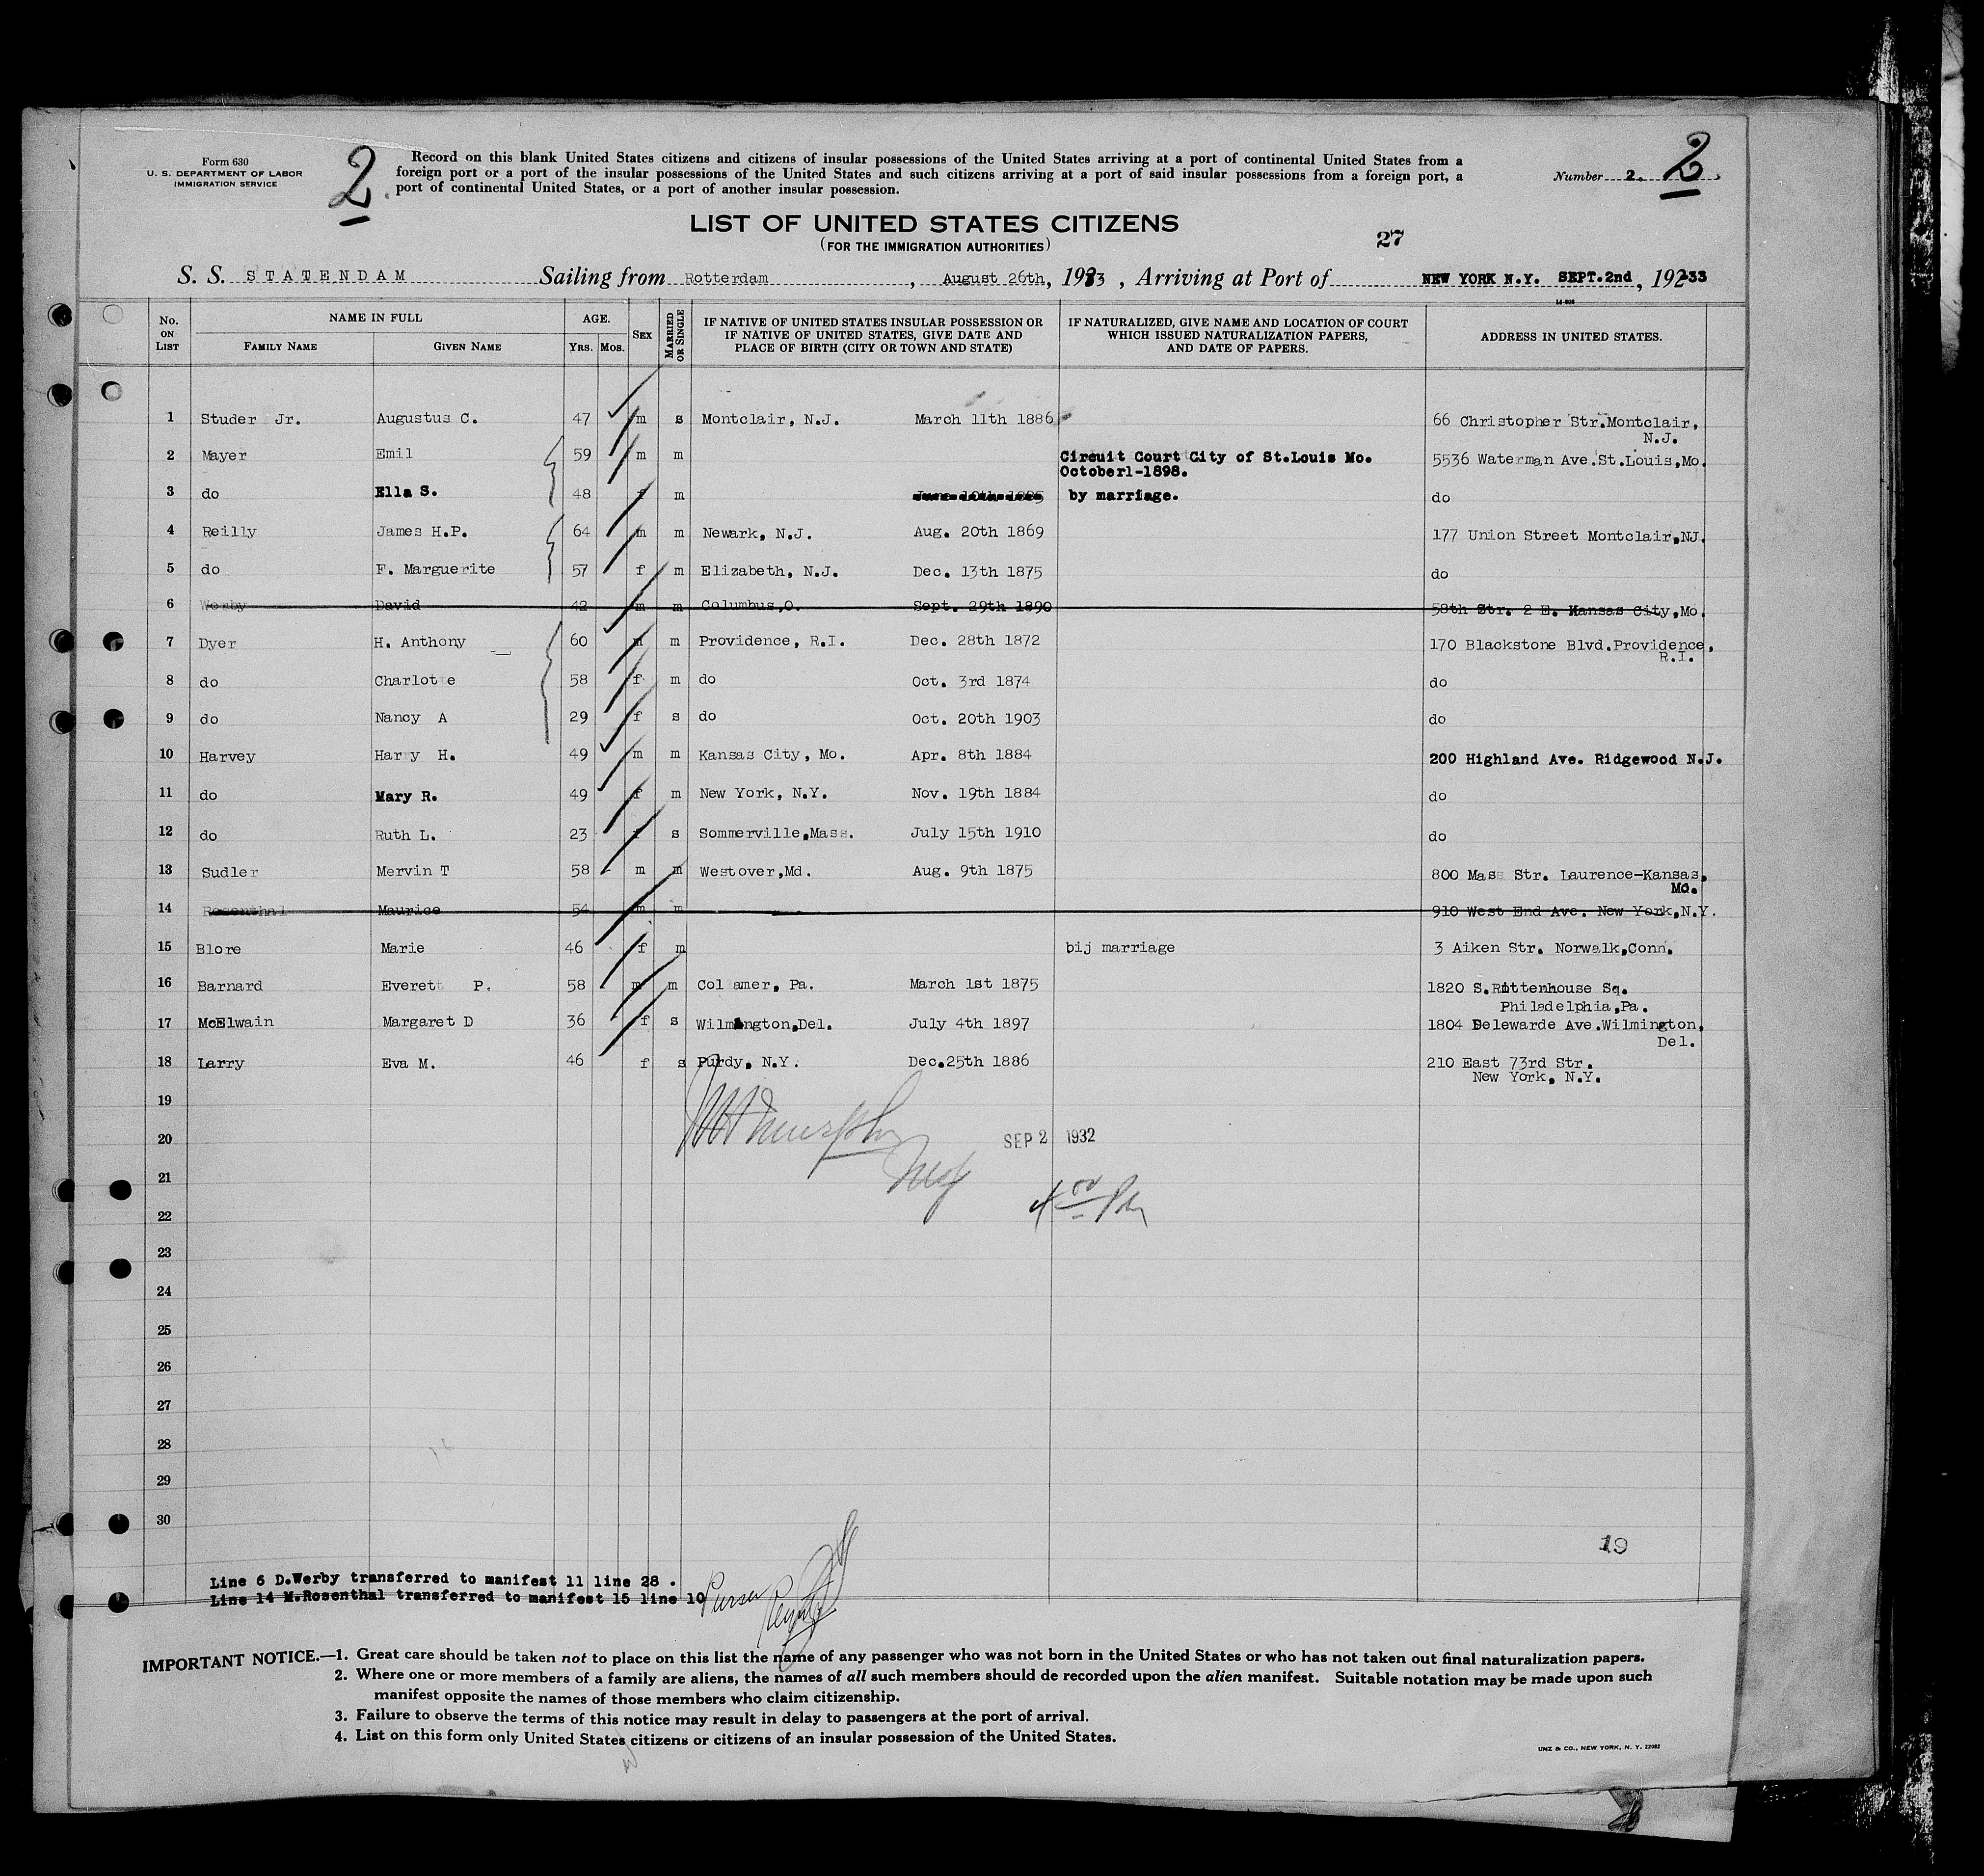 Form 630
U. S. DEPARTMENT OF LABOR
IMMIGRATION SERVICE
2
Record on this blank United States citizens and citizens of insular possessions of the United States arriving at a port of continental United States from a
foreign port or a port of the insular possessions of the United States and such citizens arriving at a port of said insular possessions from a foreign port, a
port of continental United States, or a port of another insular possession.
Number 2. 2
LIST OF UNITED STATES CITIZENS
(FOR THE IMMIGRATION AUTHORITIES)
27
S. S. STATENDAM Sailing from Rotterdam, August 26th, 1933, Arriving at Port of NEW YORK N.Y. SEPT.2nd, 192-33
14-808
No. ON LIST NAME IN FULL FAMILY NAME GIVEN NAME AGE. YRS. MOS. SEX MARRIED OR SINGLE
IF NATIVE OF UNITED STATES INSULAR POSSESSION OR
IF NATIVE OF UNITED STATES, GIVE DATE AND
PLACE OF BIRTH (CITY OR TOWN AND STATE)
IF NATURALIZED, GIVE NAME AND LOCATION OF COURT
WHICH ISSUED NATURALIZATION PAPERS,
AND DATE OF PAPERS.
ADDRESS IN UNITED STATES.
1 Studer Jr. Augustus C. 47 m s Montclair, N.J. March 11th 1886 66 Christopher Str.Montclair,
N.J.
2 Mayer Emil 59 m m Circuit Court City of St.Louis Mo. 5536 Waterman Ave.St.Louis,Mo.
October1-1898.
3 do Ella S. 48 f m June 10th 1885 by marriage. do
4 Reilly James H.P. 64 m m Newark, N.J. Aug. 20th 1869 177 Union Street Montclair,NJ.
5 do F. Marguerite 57 f m Elizabeth, N.J. Dec. 13th 1875 do
6 Werby David 42 m m Columbus,O. Sept. 29th 1890 58th Str. 2 E. Kansas City,Mo.
7 Dyer H. Anthony 60 m m Providence, R.I. Dec. 28th 1872 170 Blackstone Blvd.Providence,
R.I.
8 do Charlotte 58 f m do Oct. 3rd 1874 do
9 do Nancy A 29 f s do Oct. 20th 1903 do
10 Harvey Harry H. 49 m m Kansas City, Mo. Apr. 8th 1884 200 Highland Ave. Ridgewood N.J.
11 do Mary R. 49 f m New York, N.Y. Nov. 19th 1884 do
12 do Ruth L. 23 f s Sommerville,Mass. July 15th 1910 do
13 Sudler Mervin T 58 m m Westover,Md. Aug. 9th 1875 800 Mass Str. Laurence-Kansas,
Mo.
14 Rosenthal Maurice 54 m m 910 West End Ave. New York,N.Y.
15 Blore Marie 46 f m bij marriage 3 Aiken Str. Norwalk,Conn.
16 Barnard Everett P. 58 m m Col amer, Pa. March 1st 1875 1820 S.Rittenhouse Sq.
Philadelphia,Pa.
17 McElwain Margaret D 36 f s Wilmington,Del. July 4th 1897 1804 Delewarde Ave.Wilmington,
Del.
18 Larry Eva M. 46 f s Purdy, N.Y. Dec.25th 1886 210 East 73rd Str.
New York, N.Y.
19
20 Murphy SEP 2 1932
21
22 4 00 Pm
23
24
25
26
27
28
29
30
19
Line 6 D.Werby transferred to manifest 11 line 28 .
Line 14 M.Rosenthal transferred to manifest 15 line 10 Purser
IMPORTANT NOTICE.—1. Great care should be taken not to place on this list the name of any passenger who was not born in the United States or who has not taken out final naturalization papers.
2. Where one or more members of a family are aliens, the names of all such members should de recorded upon the alien manifest. Suitable notation may be made upon such
manifest opposite the names of those members who claim citizenship.
3. Failure to observe the terms of this notice may result in delay to passengers at the port of arrival.
4. List on this form only United States citizens or citizens of an insular possession of the United States.
UNZ & CO., NEW YORK, N. Y. 22082